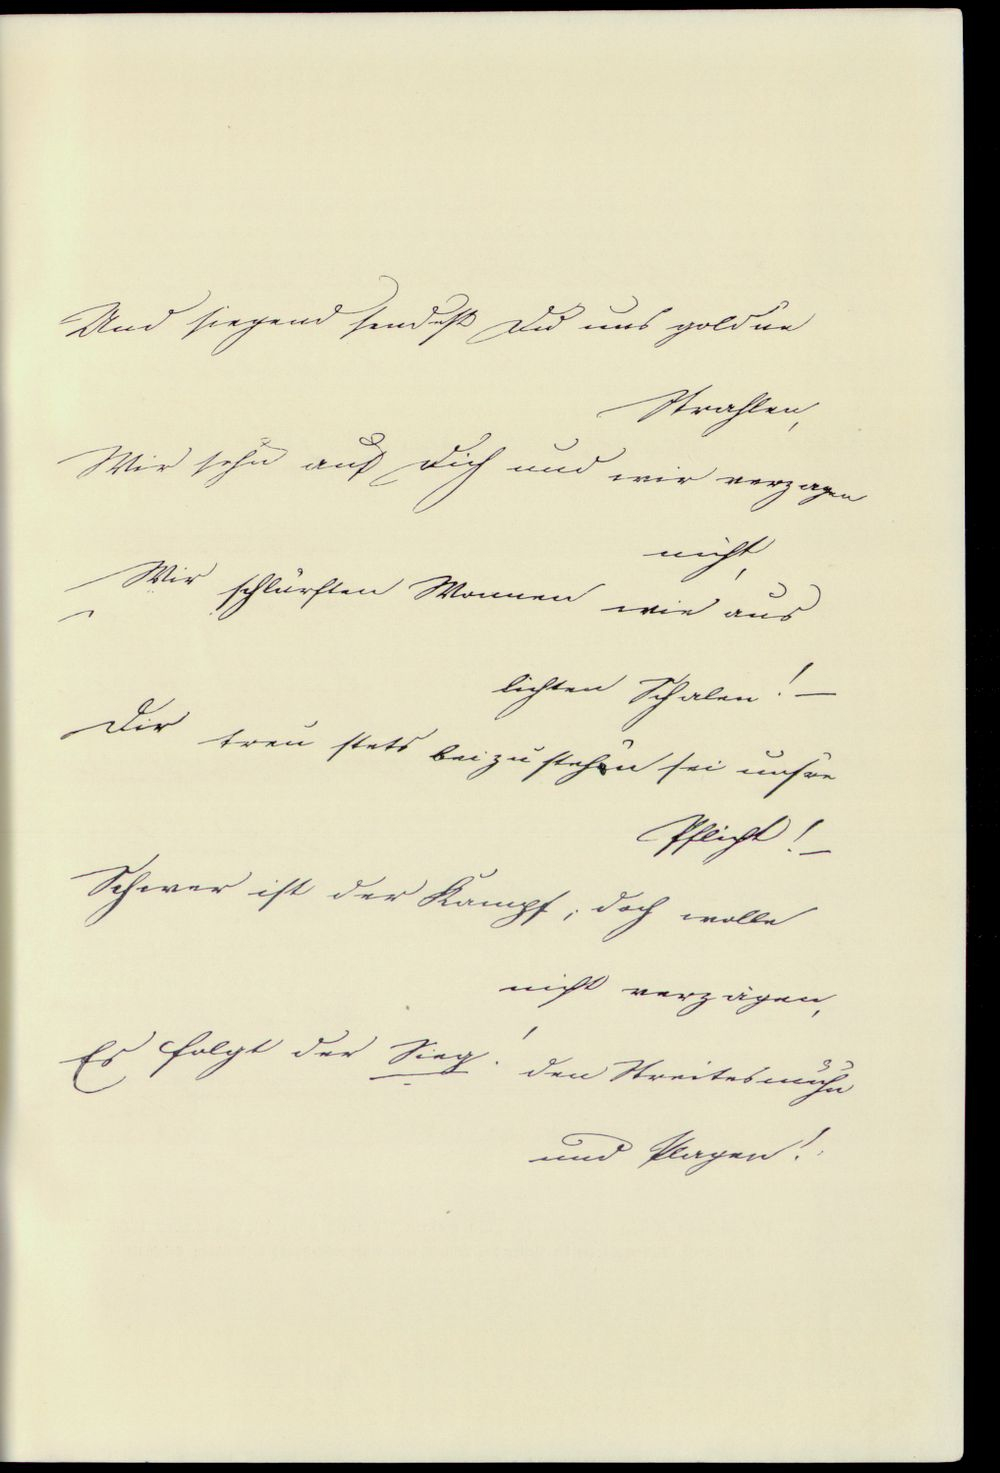 Und siegend sendest Du uns goldne
Strahlen,
Wir sehn auf Dich und wir verzagen
nicht,
Wir schlürften Wonnen wie aus
lichten Schalen! –
Dir treu stets beizustehen sei unsre
Pflicht! –
Schwer ist der Kampf; doch wolle
nicht verzagen,
Es folgt der Sieg! den Streitesmühn
und Plagen!